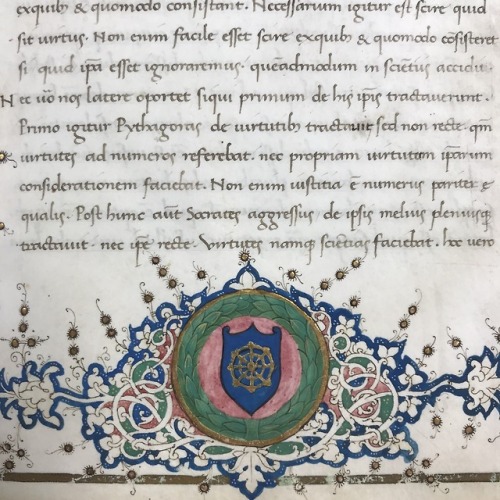 exquib; & quomodo consistant. Necessarium igitur est scire quid
sit virtus. Non enim facile esset scire exquib; & quomodo cōsisteret
si quid ip̄a esset ignoraremus. queādmodum in sciētiis accidit.
Nec u͞o nos latere oportet siqui primum de his ip̄is tractauerunt.
Primo igitur Pythagoras de uirtutib; tractauit sed non recte. qm̄
uirtutes ad numeros referebat. nec propriam uirtutum ip̄arum
considerationem faciebat. Non enim iustitia ē numerus pariter ę
qualis. Post hunc aūt Socrates aggressus de ipsis melius pleniusq;
tractauit. nec ip̄e recte. Virtutes namq; sciētias faciebat. hoc vero